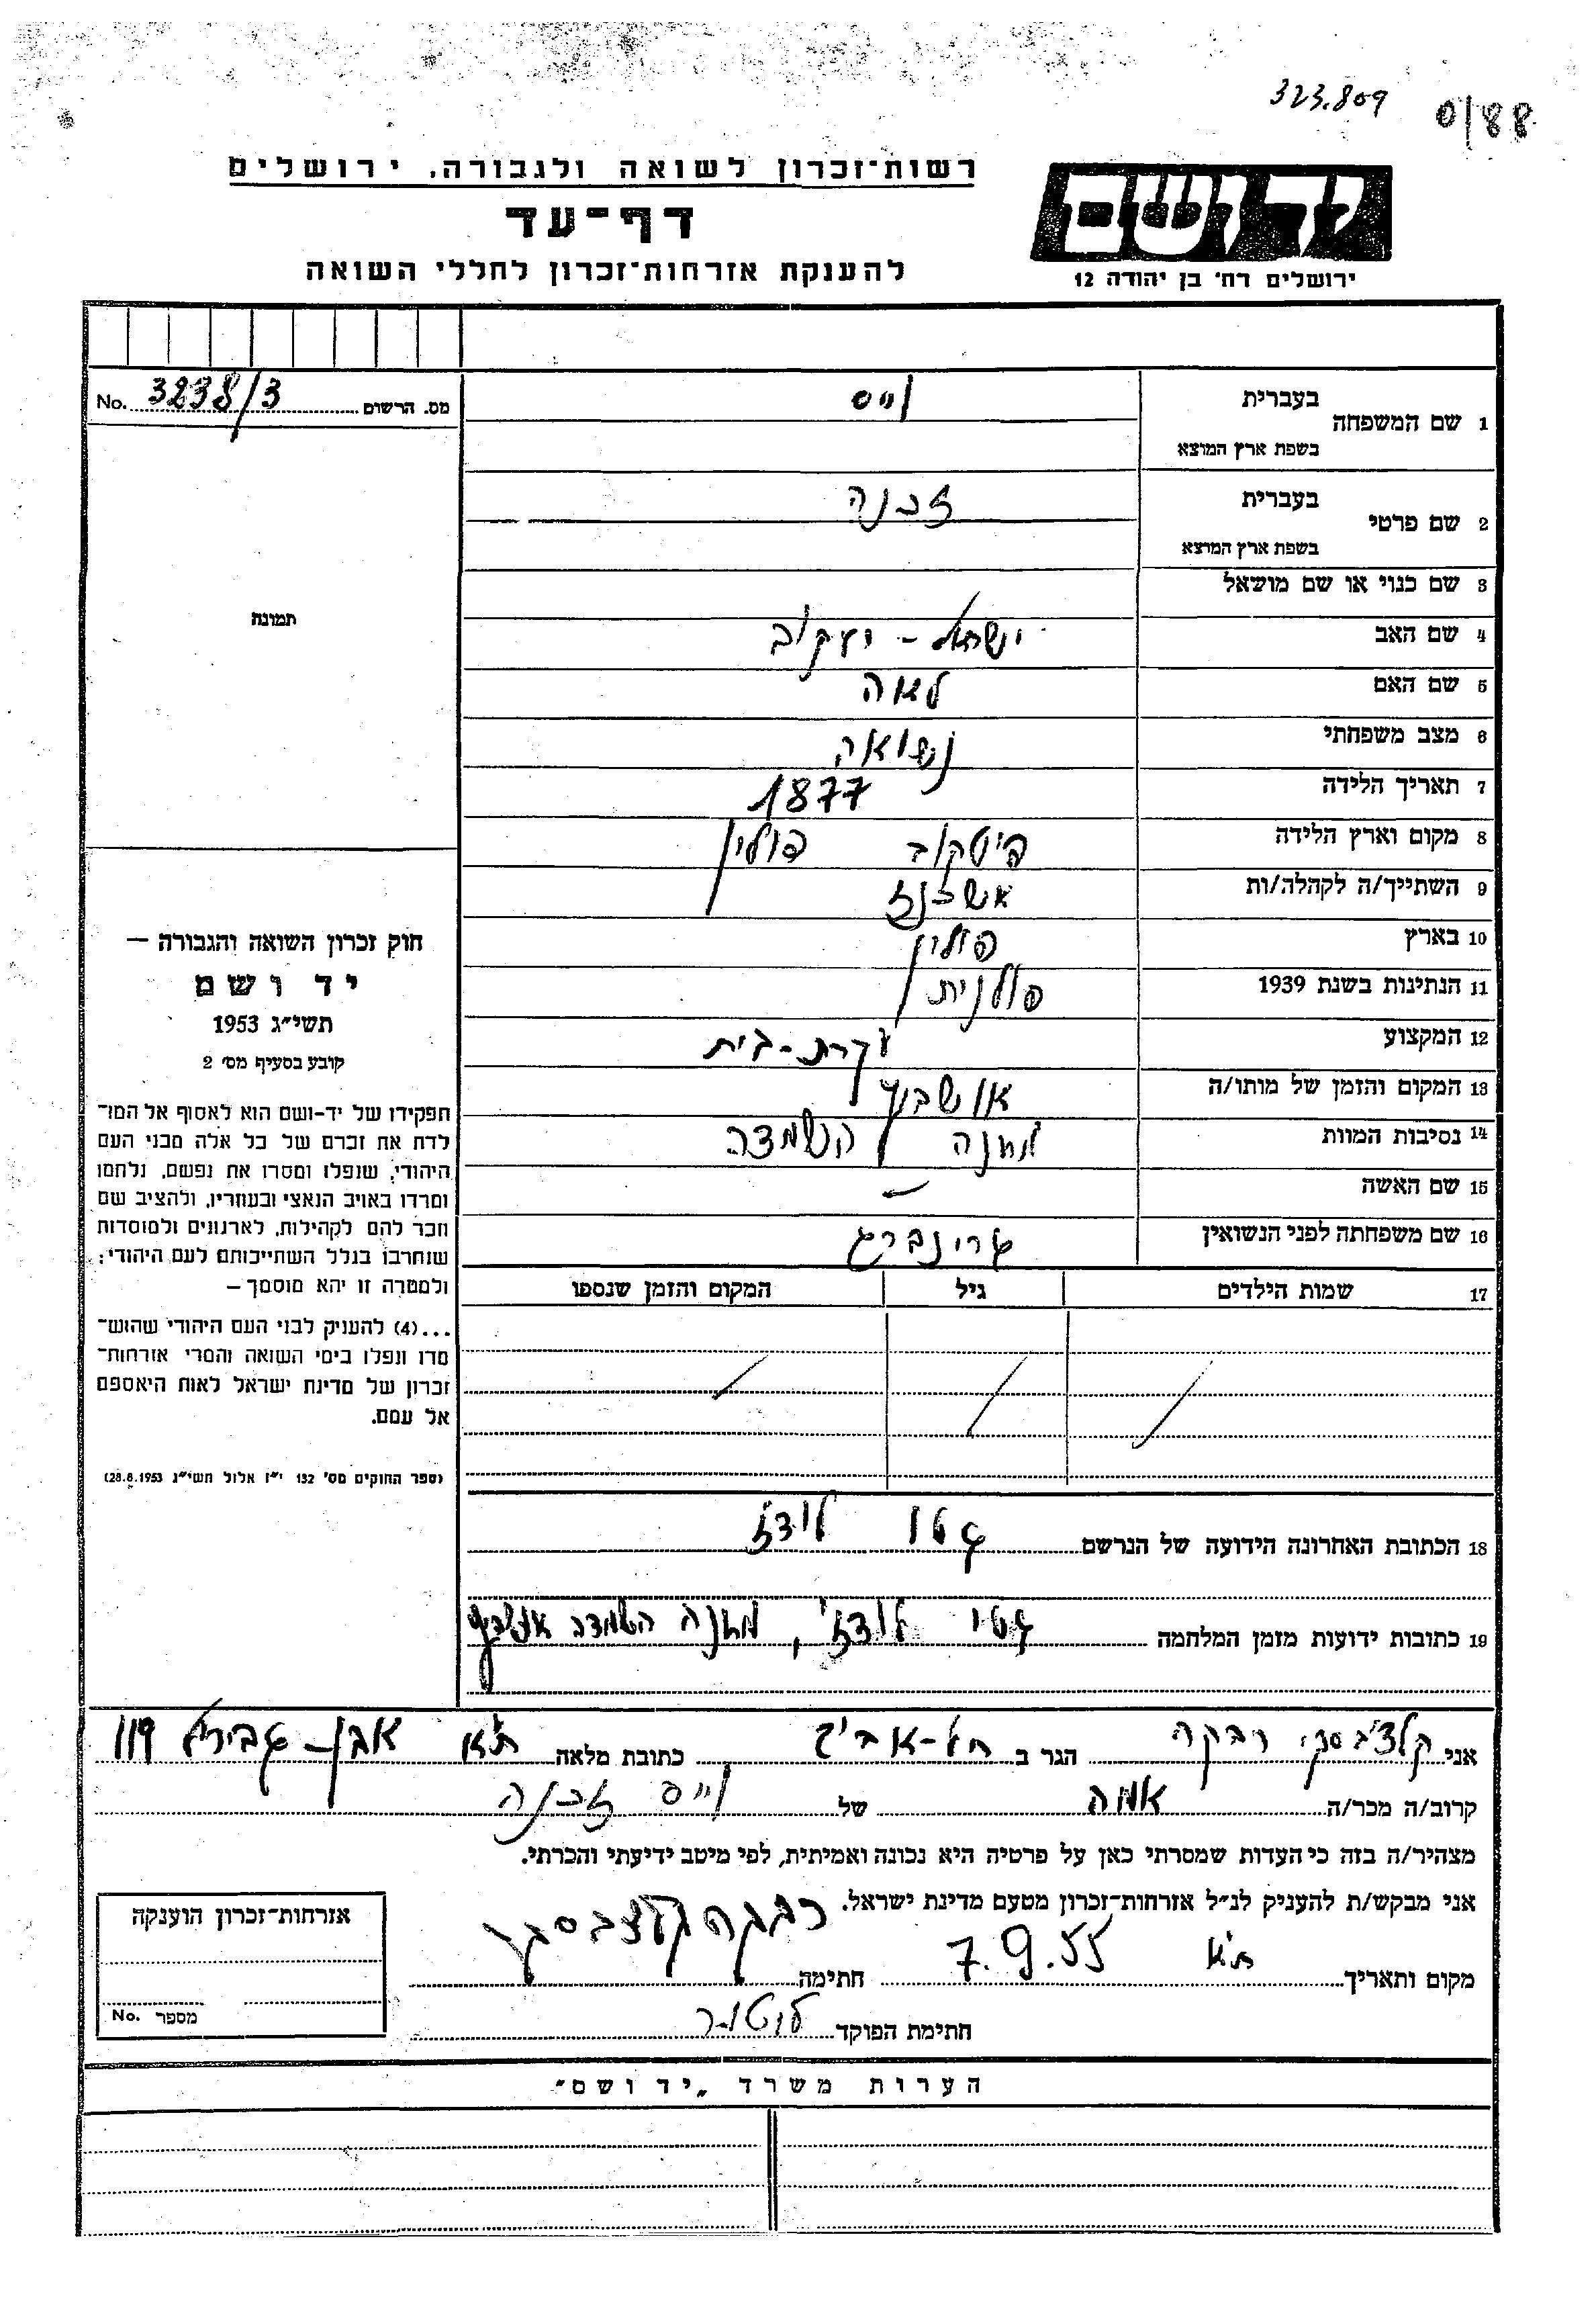 323.809
0/88
יד ושם
ירושלים רח' בן יהודה 12
רשות־זכרון לשואה ולגבורה, ירושלים
דף־עד
להענקת אזרחות־זכרון לחללי השואה
מס. הרשום 3238/3 No.
תמונה
חוק זכרון השואה והגבורה —
יד ושם
תשי״ג 1953
קובע בסעיף מס' 2
תפקידו של יד-ושם הוא לאסוף אל המו־
לדת את זכרם של כל אלה מבני העם
היהודי, שנפלו ומסרו את נפשם, נלחמו
ומרדו באויב הנאצי ובעוזריו, ולהציב שם
וזכר להם לקהילות, לארגונים ולמוסדות
שנחרבו בגלל השתייכותם לעם היהודי;
ולמטרה זו יהא מוסמך —
...(4) להעניק לבני העם היהודי שהוש־
מדו ונפלו בימי השואה והמרי אזרחות־
זכרון של מדינת ישראל לאות היאספם
אל עמם.
(ספר החוקים מס' 132 י״ז אלול תשי״ג 28.8.1953)
1 שם המשפחה בעברית וייס
בשפת ארץ המוצא
2 שם פרטי בעברית זכנה
בשפת ארץ המוצא
3 שם כנוי או שם מושאל
4 שם האב ישראל - יעקוב
5 שם האם לאה
6 מצב משפחתי נשואה
7 תאריך הלידה 1877
8 מקום וארץ הלידה פיטקוב פולין
9 השתייך/ה לקהלה/ות אשכנז
10 בארץ פולין
11 הנתינות בשנת 1939 פולנית
12 המקצוע עקרת-בית
13 המקום והזמן של מותו/ה אושביץ
14 נסיבות המוות מחנה השמדה
15 שם האשה
16 שם משפחתה לפני הנשואין גרינברג
17 שמות הילדים גיל המקום והזמן שנספו
18 הכתובת האחרונה הידועה של הנרשם גטו לודז
19 כתובות ידועות מזמן המלחמה גטו לודז', מחנה השמדה אושביץ
אני קלצ'בסקי רבקה הגר ב תל-אביב כתובת מלאה ת"א אבן-גבירול 119
קרוב/ה מכר/ה אמה של וייס זכנה
מצהיר/ה בזה כי העדות שמסרתי כאן על פרטיה היא נכונה ואמיתית, לפי מיטב ידיעתי והכרתי.
אני מבקש/ת להעניק לנ״ל אזרחות־זכרון מטעם מדינת ישראל.
מקום ותאריך ת"א 7.9.55 חתימה רבקה קלצבסקי
חתימת הפוקד
אזרחות־זכרון הוענקה
מספר No.
הערות משרד „יד ושם"